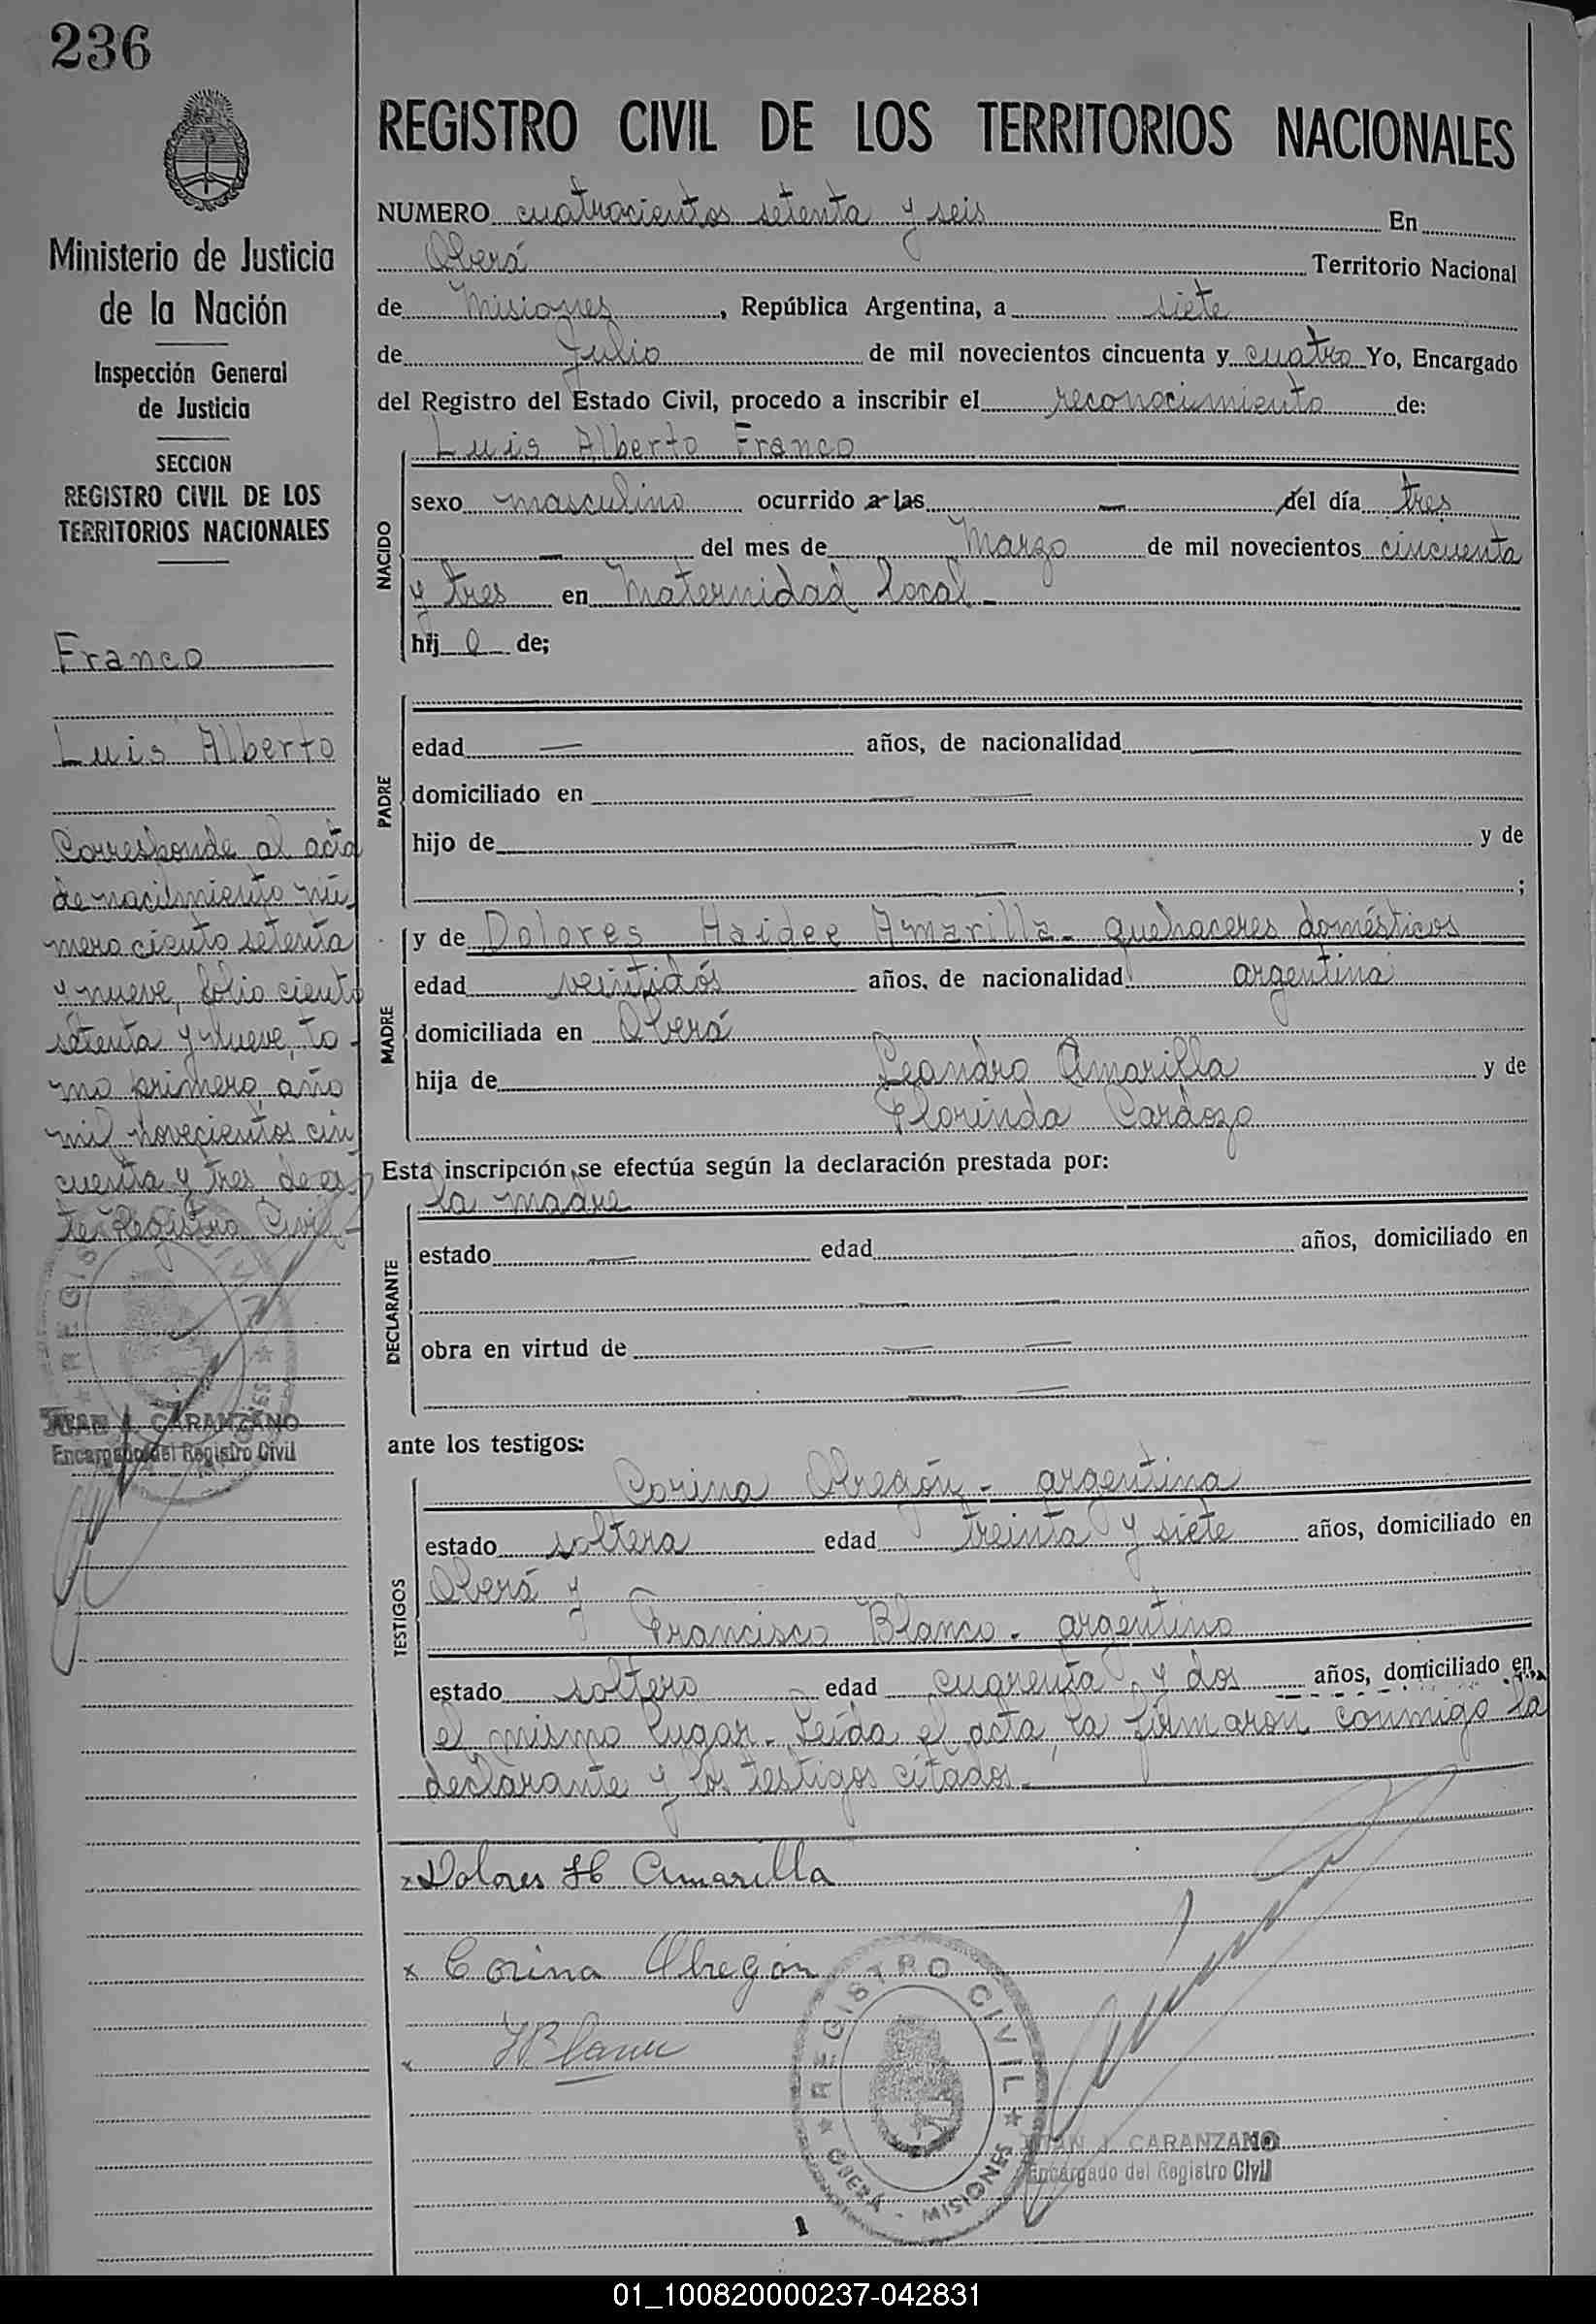 236
Ministerio de Justicia
de la Nación
Inspección General
de Justicia
SECCION
REGISTRO CIVIL DE LOS
TERRITORIOS NACIONALES
Franco
Luis Alberto
Corresponde al acta
de nacimiento nú-
mero ciento setenta
y nueve, folio ciento
setenta y nueve, to-
mo primero, año
mil novecientos cin
cuenta y tres de es-
te Registro Civil-
JUAN J. CARANZANO
Encargado del Registro Civil
REGISTRO CIVIL DE LOS TERRITORIOS NACIONALES
NUMERO cuatrocientos setenta y seis En
Oberá Territorio Nacional
de Misiones, República Argentina, a siete
de Julio de mil novecientos cincuenta y cuatro Yo, Encargado
del Registro del Estado Civil, procedo a inscribir el reconocimiento de:
Luis Alberto Franco
NACIDO
sexo masculino ocurrido a las — del día tres
— del mes de Marzo de mil novecientos cincuenta
y tres en Maternidad local -
hij o de;
PADRE
edad — años, de nacionalidad —
domiciliado en — —
hijo de — y de
— ;
MADRE
y de Dolores Haidee Amarilla - quehaceres domésticos
edad veintidós años, de nacionalidad argentina
domiciliada en Oberá
hija de Leandro Amarilla y de
Florinda Cardozo
Esta inscripción se efectúa según la declaración prestada por:
la madre
DECLARANTE
estado — edad — años, domiciliado en
— —
obra en virtud de — —
— —
ante los testigos:
TESTIGOS
Corina Obregón - argentina
estado soltera edad treinta y siete años, domiciliado en
Oberá y
Francisco Blanco - argentino
estado soltero edad cuarenta y dos años, domiciliado en
el mismo lugar - Leída el acta, la firmaron conmigo la
declarante y los testigos citados -
x Dolores H Amarilla
x Corina Obregón
x
REGISTRO CIVIL
OBERÁ - MISIONES
JUAN J. CARANZANO
Encargado del Registro Civil
1
01_100820000237-042831